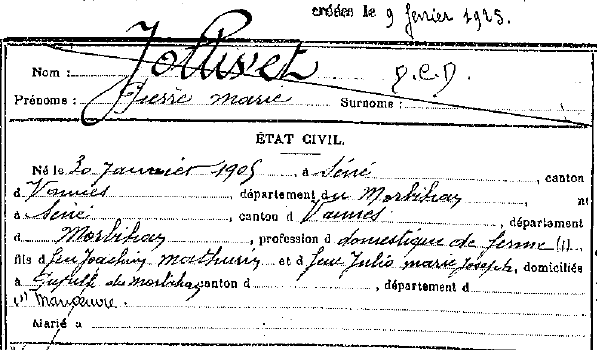 créées le 9 février 1925.
Nom : Jollivet D.C.D.
Prénoms : Pierre marie Surnome :
ÉTAT CIVIL.
Né le 30 Janvier 1905, à Séné, canton
d Vannes département du Morbihan,
à Séné, canton d Vannes, département
d Morbihan, profession d domestique de ferme (1).
fils d feu Joachim mathurin et d feue Julie marie Joseph, domiciliés
à du Morbihan canton d , département d
(1) Manœuvre.
Marié à